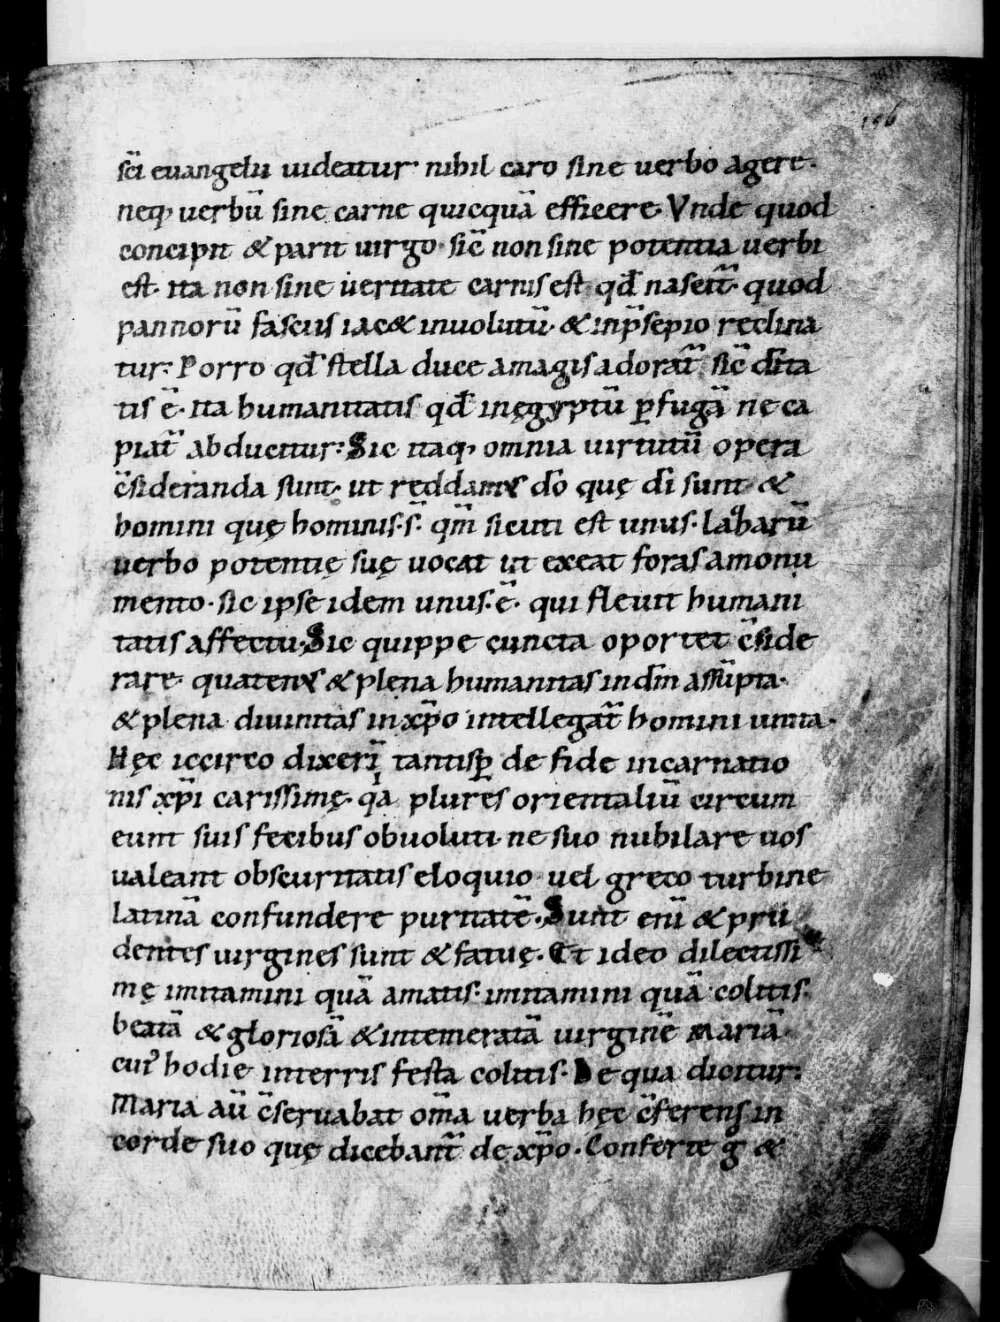 196
sc̄i euangelii uideatur· nihil caro sine uerbo agere·
neq; uerbū sine carne quicquā efficere· Vnde quod
concipit & parit uirgo· sic̄ non sine potentia uerbi
est· ita non sine ueritate carnis est qđ nascit᷒· quod
pannorū fasciis iac& inuolutū· & inp̄sepio reclina
tur· Porro qđ stella duce amagis adorat᷒ sic̄ diu̅ita
tis ē· ita humanitatis qđ inęgyptū ꝑ fugā ne ca
piat᷒ abducitur· Sic itaq; omnia uirtutū opera
c̄sideranda sunt· ut reddam᷒ dō quę dī sunt &
homini quę hominis· s̄· qm̄ sicuti est unus· Lazarū
uerbo potentię suę uocat ut exeat foras amonu
mento· sic ipse idem unus· ē· qui fleuit humani
tatis affectu· Sic quippe cuncta oportet c̄side
rare· quaten᷒ & plena humanitas indm̄ assūpta·
& plena diuinitas in xp̄o intellegat᷒ homini unita·
Hęc iccirco dixeri tantisꝑ de fide incarnatio
nis xp̄i carissimę· qa plures orientaliū circum
eunt suis fecibus obuoluti· ne suo nubilare uos
ualeant obscuritatis eloquio uel greco turbine
latinā confundere puritatē· Sunt eni̅ & pru
dentes uirgines sunt & fatuę· Et ideo dilectissi
mę imitamini quā amatis· imitamini quā colitis·
beatā & gloriosā & intemeratā uirginē Mariā
cui᷒ hodie interris festa colitis· De qua dicitur·
Maria au̅ c̄seruabat om̄a uerba hęc c̄ferens in
corde suo quę dicebant᷒ de xp̄o· Conferte g̊ &